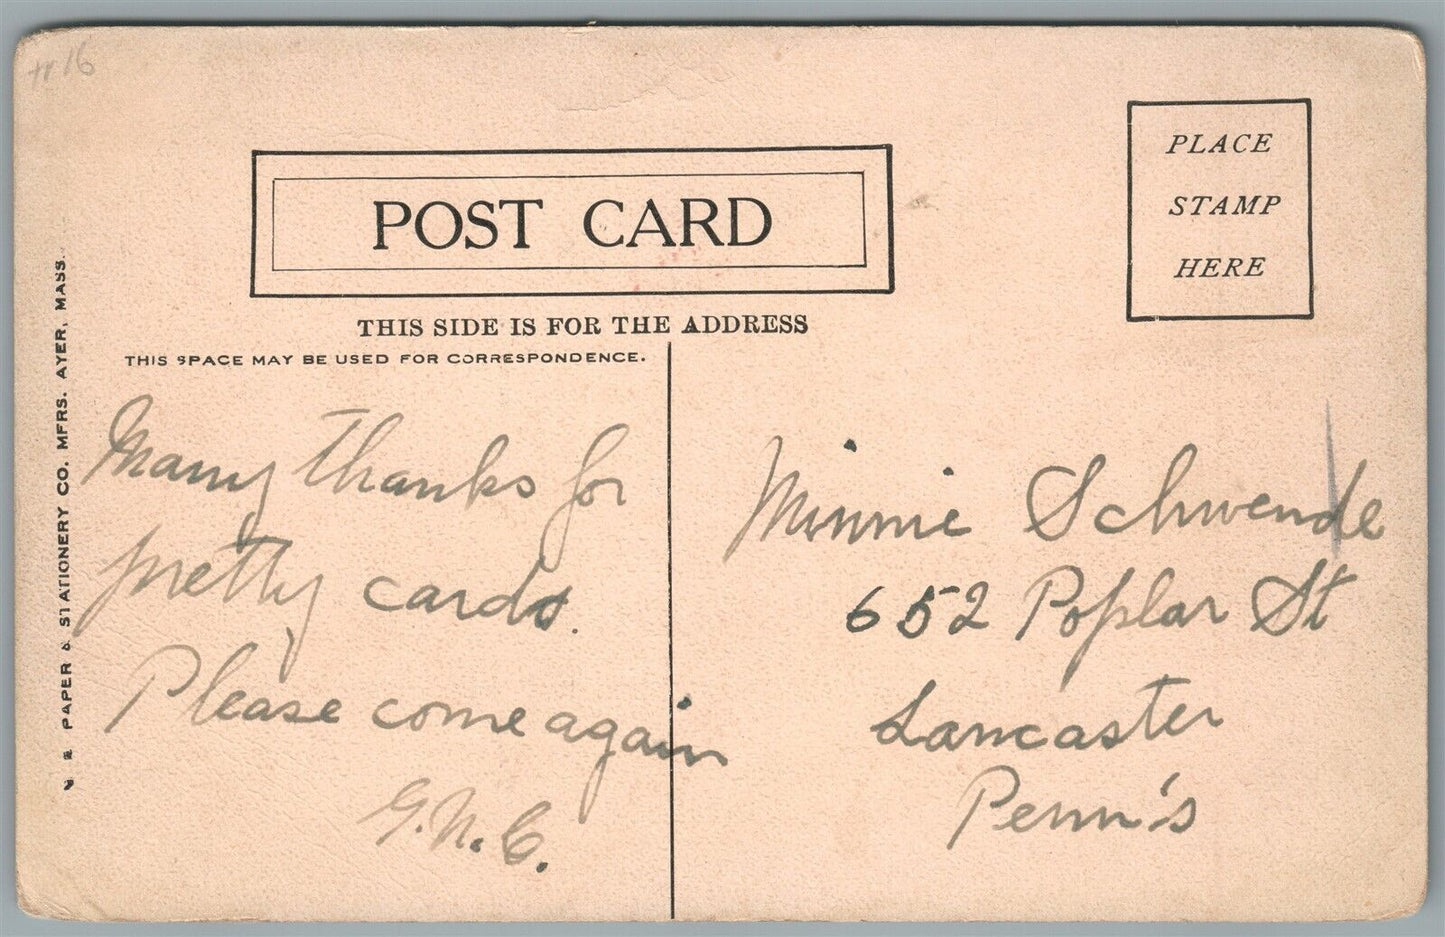 #16
POST CARD
PLACE
STAMP
HERE
THIS SIDE IS FOR THE ADDRESS
THIS SPACE MAY BE USED FOR CORRESPONDENCE.
PAPER & STATIONERY CO. MFRS. AYER, MASS.
Many thanks for
pretty cards.
Please come again
G.N.C.
Minnie Schwende
652 Poplar St
Lancaster
Penn's